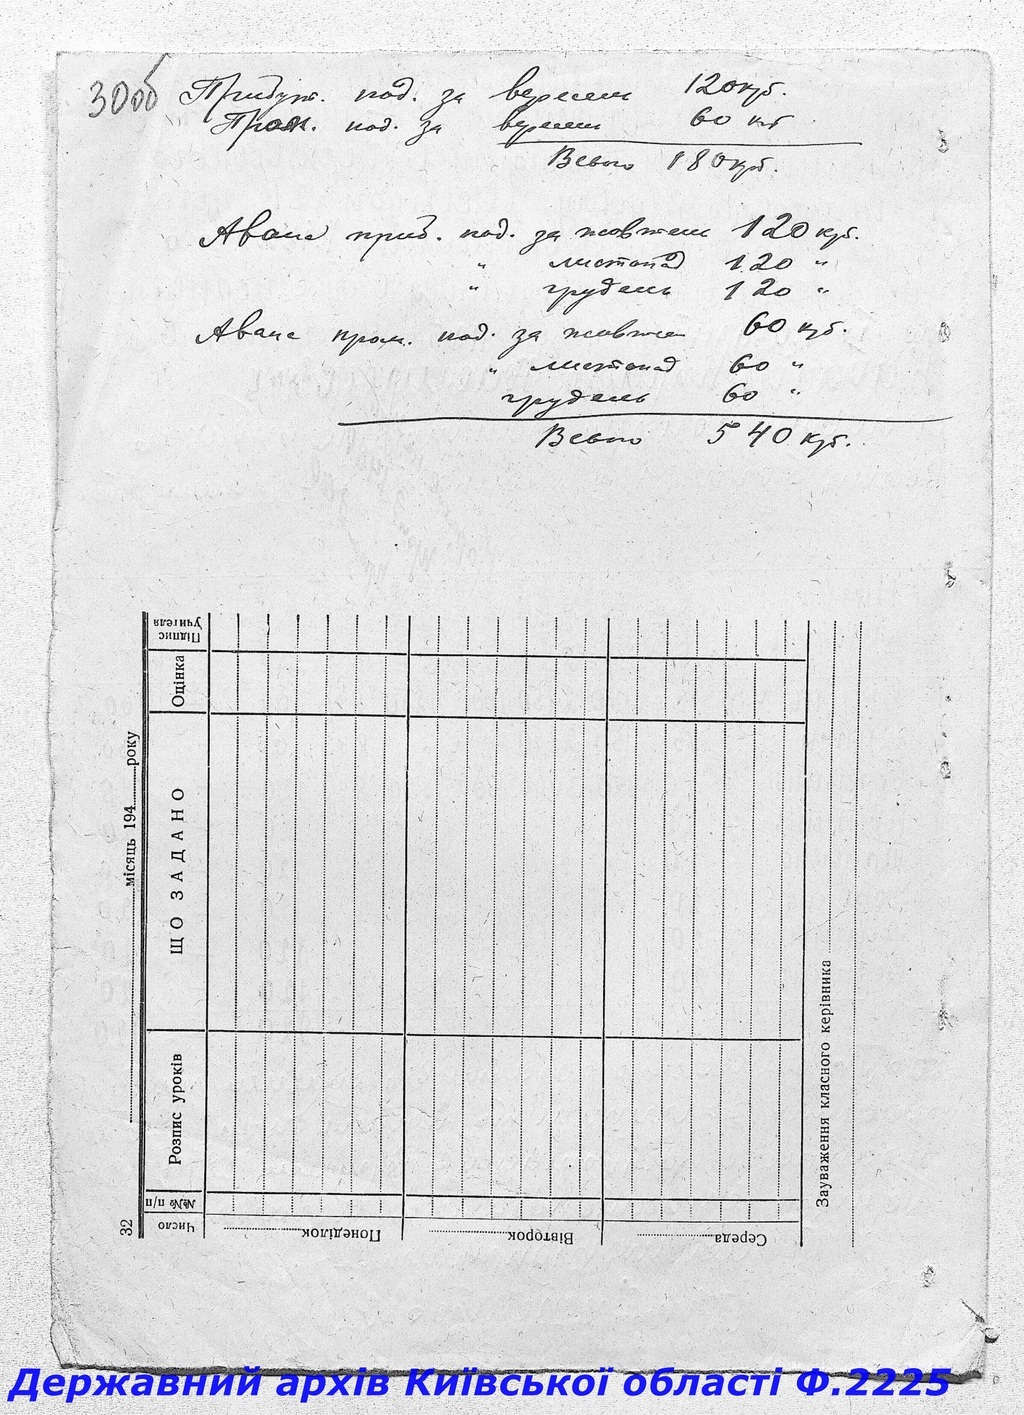 30об
Прибут. под. за вересень 120 крб.
Пром. под. за вересень 60 крб
Всього 180 крб.
Аванс приб. под. за жовтень 120 крб.
" листопад 120 "
" грудень 120 "
Аванс пром. под. за жовтен 60 крб.
" листопад 60 "
грудень 60 "
Всього 540 крб.
32
місяць 194 року
Число
№№ п/п
Розпис уроків
ЩО ЗАДАНО
Оцінка
Підпис
Учителя
Понеділок
Вівторок
Середа
Зауваження класного керівника
Державний архів Київської області Ф.2225